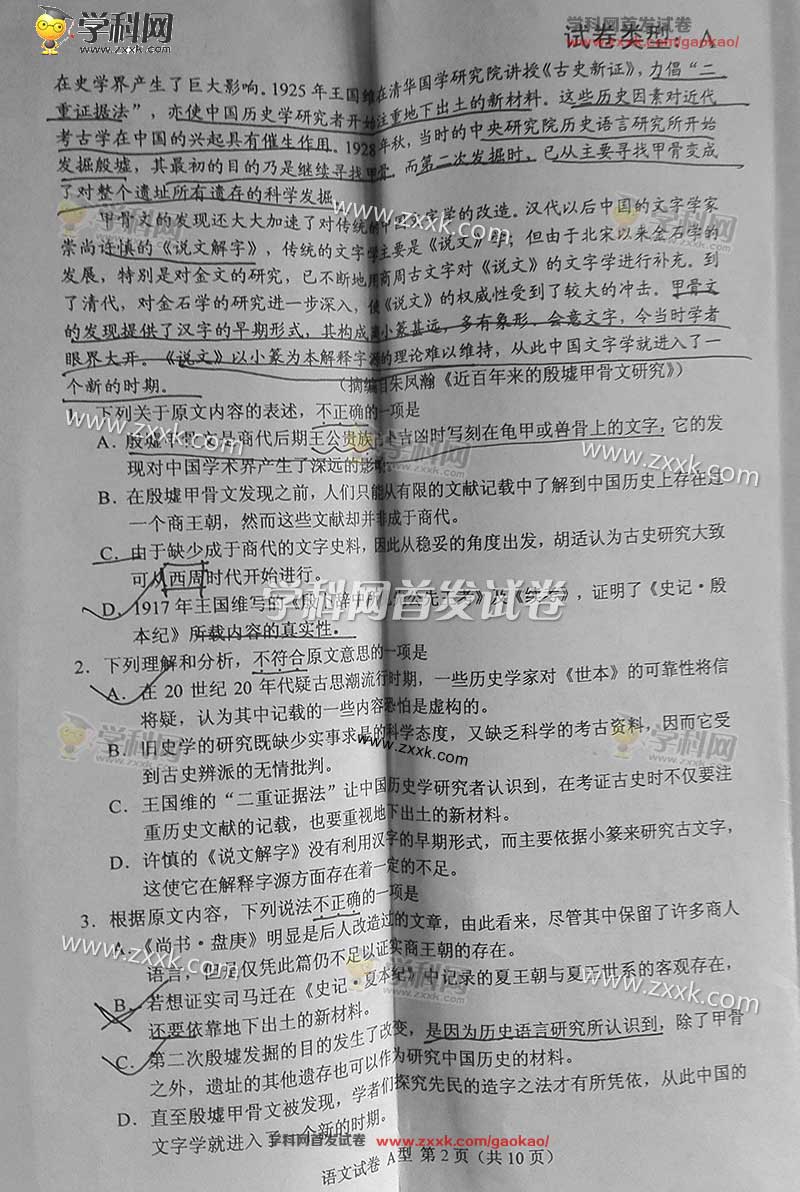 学科网
www.zxxk.com
学科网首发试卷
www.zxxk.com/gaokao/
试卷类型：A
在史学界产生了巨大影响。1925年王国维在清华国学研究院讲授《古史新证》，力倡“二
重证据法”，亦使中国历史学研究者开始注重地下出土的新材料。这些历史因素对近代
考古学在中国的兴起具有催生作用。1928年秋，当时的中央研究院历史语言研究所开始
发掘殷墟，其最初的目的乃是继续寻找甲骨，而第二次发掘时，已从主要寻找甲骨变成
了对整个遗址所有遗存的科学发掘。
甲骨文的发现还大大加速了对传统的中国文字学的改造。汉代以后中国的文字学家
崇尚许慎的《说文解字》，传统的文字学主要是《说文》学；但由于北宋以来金石学的
发展，特别是对金文的研究，已不断地用商周古文字对《说文》的文字学进行补充。到
了清代，对金石学的研究进一步深入，使《说文》的权威性受到了较大的冲击。甲骨文
的发现提供了汉字的早期形式，其构成离小篆甚远，多有象形、会意文字，令当时学者
眼界大开。《说文》以小篆为本解释字源的理论难以维持，从此中国文字学就进入了一
个新的时期。
（摘编自朱凤瀚《近百年来的殷墟甲骨文研究》）
1．下列关于原文内容的表述，不正确的一项是
A．殷墟甲骨文是商代后期王公贵族占卜吉凶时写刻在龟甲或兽骨上的文字，它的发
现对中国学术界产生了深远的影响。
B．在殷墟甲骨文发现之前，人们只能从有限的文献记载中了解到中国历史上存在过
一个商王朝，然而这些文献却并非成于商代。
C．由于缺少成于商代的文字史料，因此从稳妥的角度出发，胡适认为古史研究大致
可从西周时代开始进行。
D．1917年王国维写的《殷卜辞中所见先公先王考》及《续考》，证明了《史记·殷
本纪》所载内容的真实性。
2．下列理解和分析，不符合原文意思的一项是
A．在20世纪20年代疑古思潮流行时期，一些历史学家对《世本》的可靠性将信
将疑，认为其中记载的一些内容恐怕是虚构的。
B．旧史学的研究既缺少实事求是的科学态度，又缺乏科学的考古资料，因而它受
到古史辨派的无情批判。
C．王国维的“二重证据法”让中国历史学研究者认识到，在考证古史时不仅要注
重历史文献的记载，也要重视地下出土的新材料。
D．许慎的《说文解字》没有利用汉字的早期形式，而主要依据小篆来研究古文字，
这使它在解释字源方面存在着一定的不足。
3．根据原文内容，下列说法不正确的一项是
A．《尚书·盘庚》明显是后人改造过的文章，由此看来，尽管其中保留了许多商人
语言，但是仅凭此篇仍不足以证实商王朝的存在。
B．若想证实司马迁在《史记·夏本纪》中记录的夏王朝与夏王世系的客观存在，
还要依靠地下出土的新材料。
C．第二次殷墟发掘的目的发生了改变，是因为历史语言研究所认识到，除了甲骨
之外，遗址的其他遗存也可以作为研究中国历史的材料。
D．直至殷墟甲骨文被发现，学者们探究先民的造字之法才有所凭依，从此中国的
文字学就进入了一个新的时期。
学科网首发试卷
www.zxxk.com/gaokao/
语文试卷 A型 第2页（共10页）